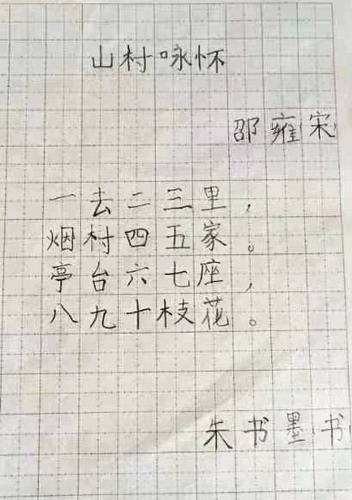 山村咏怀
邵雍宋
一去二三里，
烟村四五家。
亭台六七座，
八九十枝花。
朱书墨书